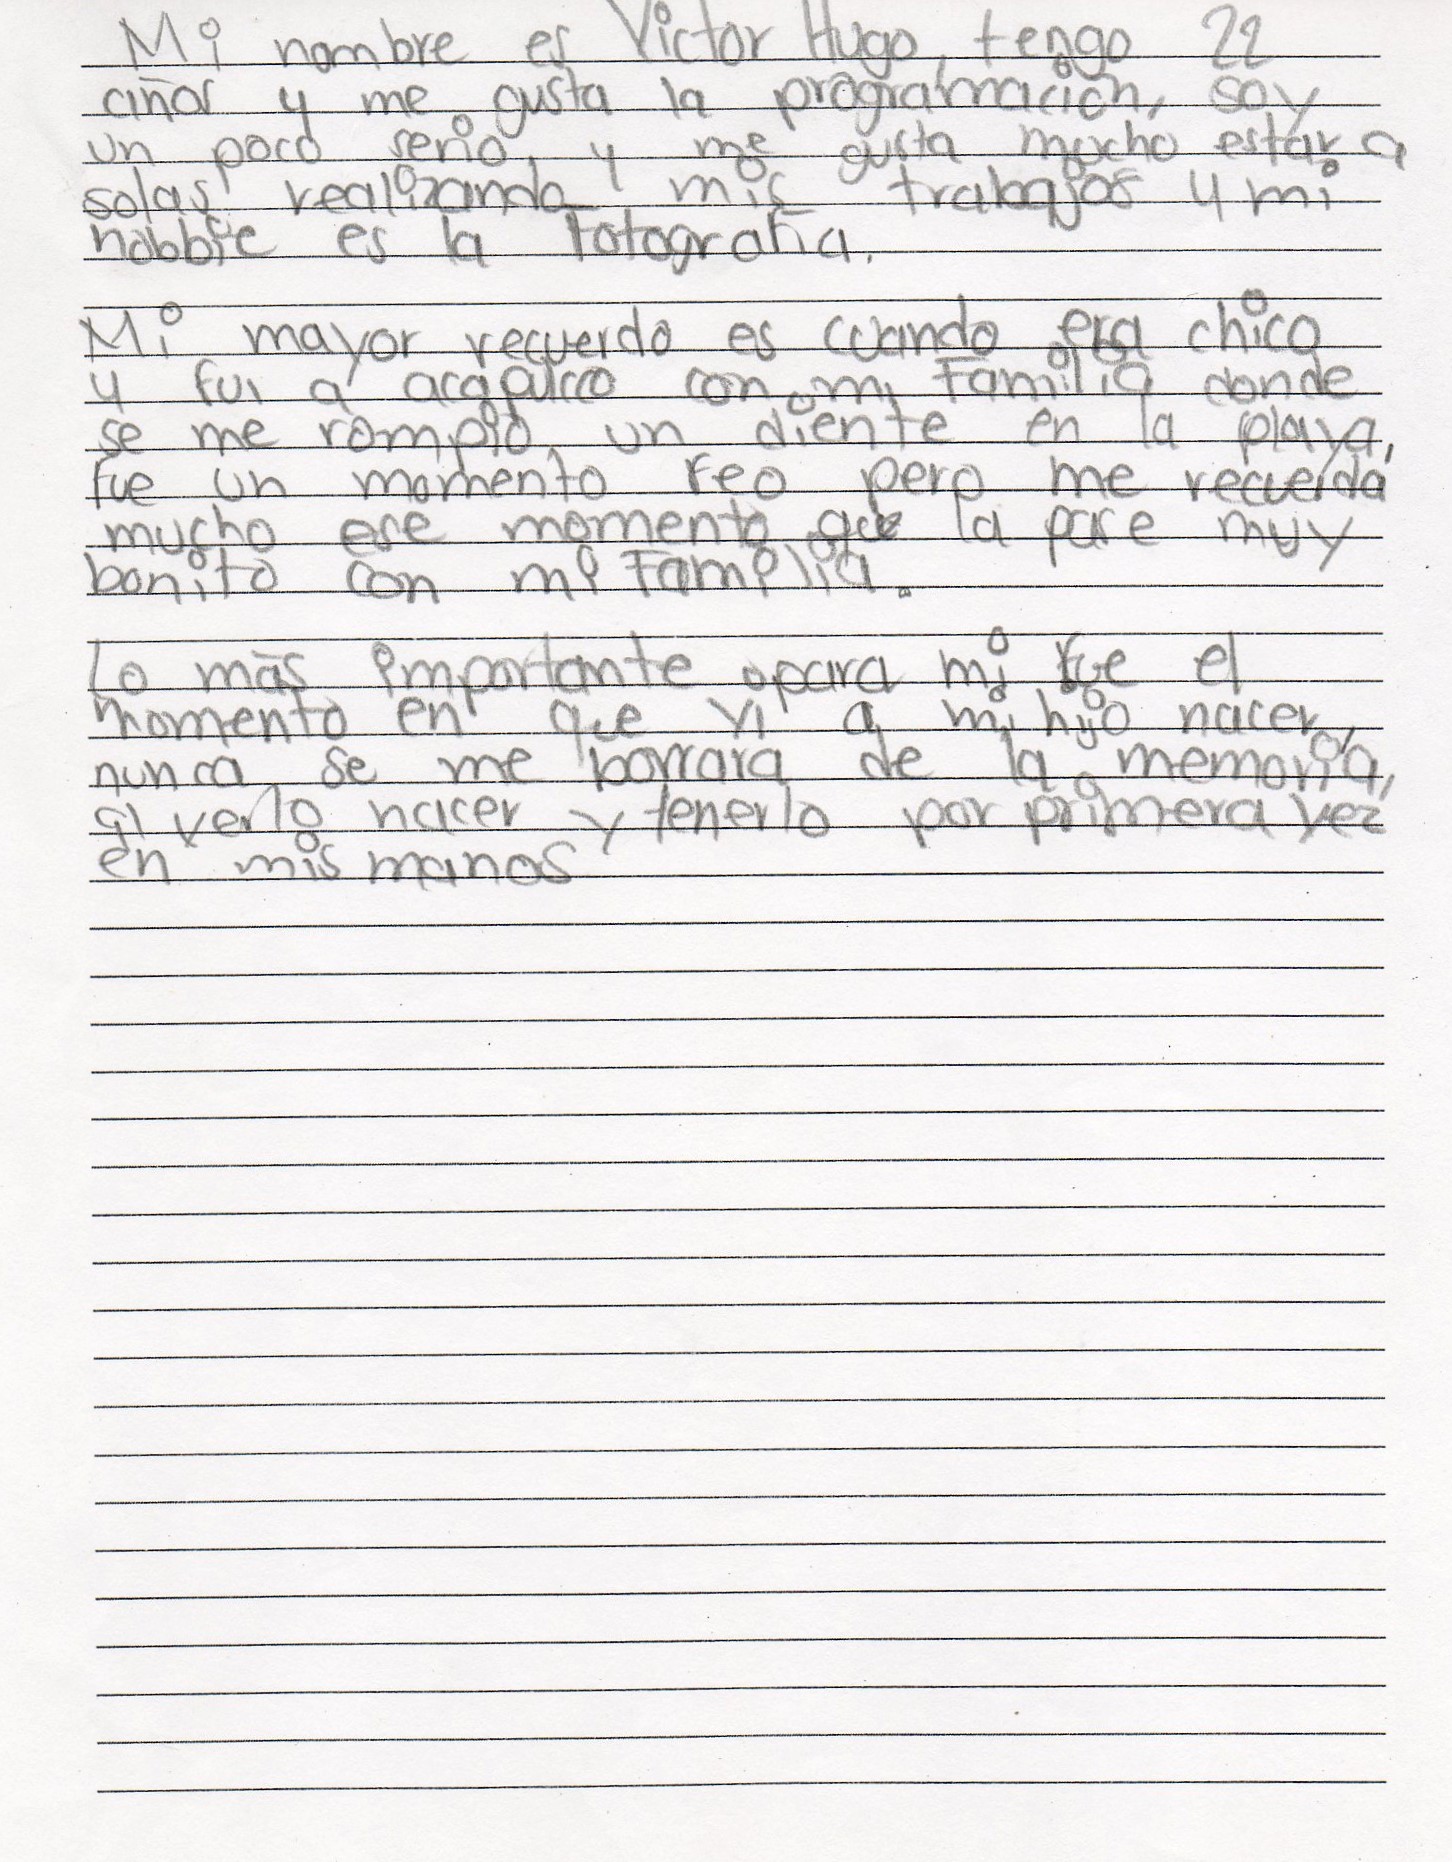 Mi nombre es Victor Hugo, tengo 22
años y me gusta la programación, soy
un poco serio, y me gusta mucho estar a
solas realizando mis trabajos y mi
hobbie es la Fotografia.
Mi mayor recuerdo es cuando era chico
y fui a acapulco con mi Familia donde
se me rompio un diente en la playa,
fue un momento Feo pero me recuerda
mucho ese momento que la pase muy
bonito con mi Familia.
Lo más importante para mi fue el
momento en que vi a mi hijo nacer,
nunca se me borrara de la memoria,
al verlo nacer y tenerlo por primera vez
en mis manos